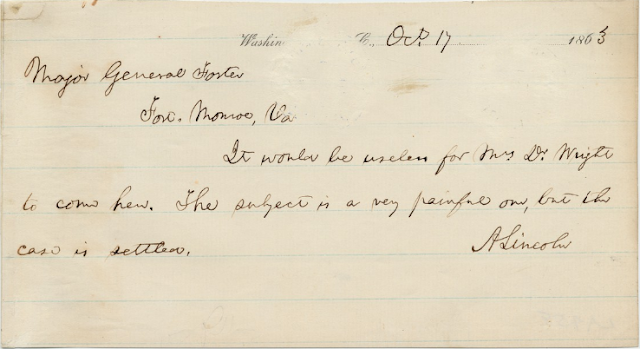 Washin C., Oct. 17 1863
Major General Foster
Fort. Monroe, Va
It would be useless for Mrs Dr. Wright
to come here. The subject is a very painful one, but the
case is settled.
A Lincoln